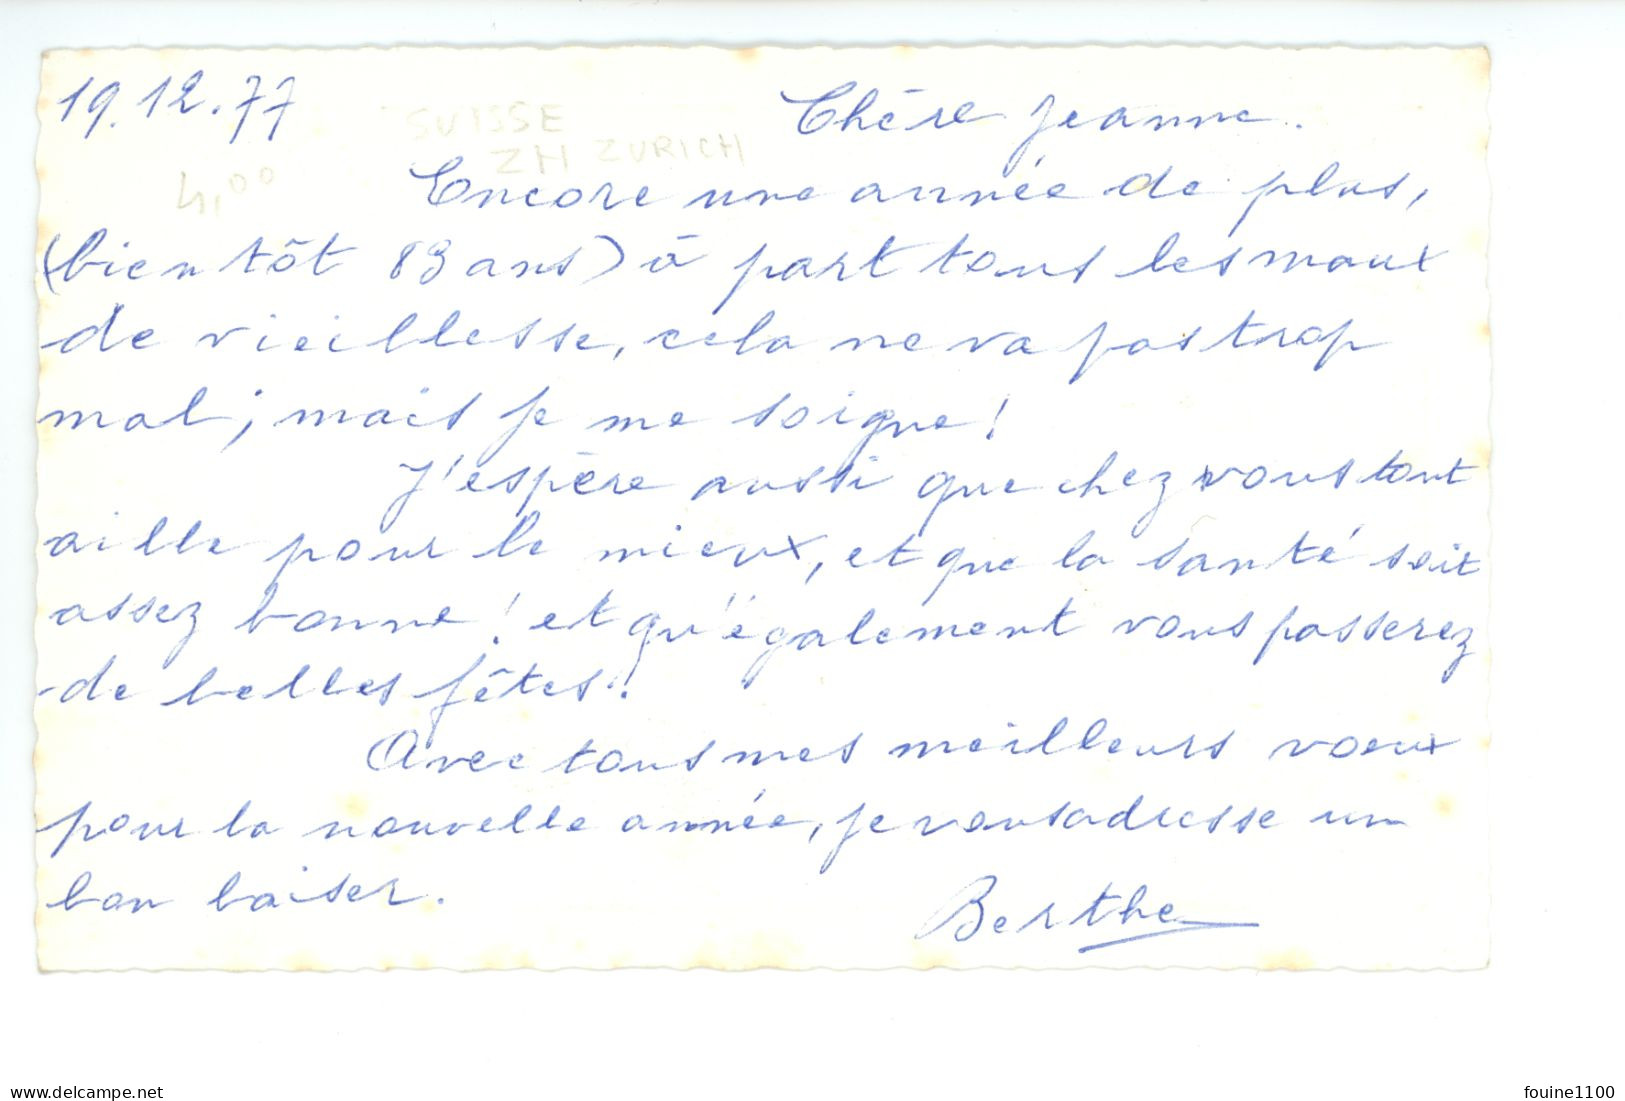 19.12.77
Chère Jeanne.
SUISSE
ZH ZURICH
4,00
Encore une année de plus,
(bientôt 83 ans) à part tous les maux
de vieillesse, cela ne va pas trop
mal; mais je me soigne!
J'espère aussi que chez vous tout
aille pour le mieux, et que la santé soit
assez bonne! et qu'également vous passerez
de belles fêtes!
Avec tous mes meilleurs voeux
pour la nouvelle année, je vous adresse un
bon baiser.
Berthe
www.delcampe.net
fouine1100